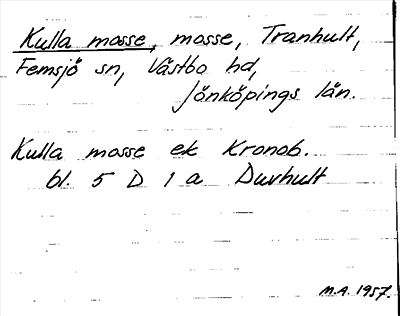 Kulla mosse, mosse, Tranhult,
Femsjö sn, Västbo hd,
Jönköpings län.
Kulla mosse ek Kronob.
bl. 5 D 1 a Duvhult
M.A. 1957.